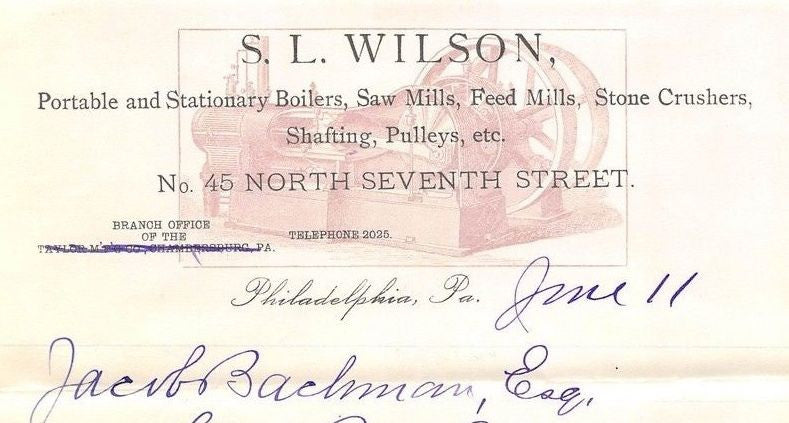 S. L. WILSON,
Portable and Stationary Boilers, Saw Mills, Feed Mills, Stone Crushers,
Shafting, Pulleys, etc.
No. 45 NORTH SEVENTH STREET.
BRANCH OFFICE
OF THE
TAYLOR M'F'G CO., CHAMBERSBURG, PA.
TELEPHONE 2025.
Philadelphia, Pa. June 11
Jacob Bachman, Esq.